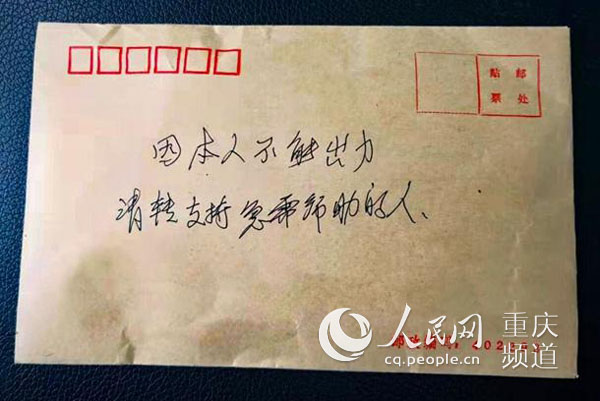 贴邮
票处
因本人不能出力
请转支持急需帮助的人、
人民网
重庆
频道
cq.people.cn